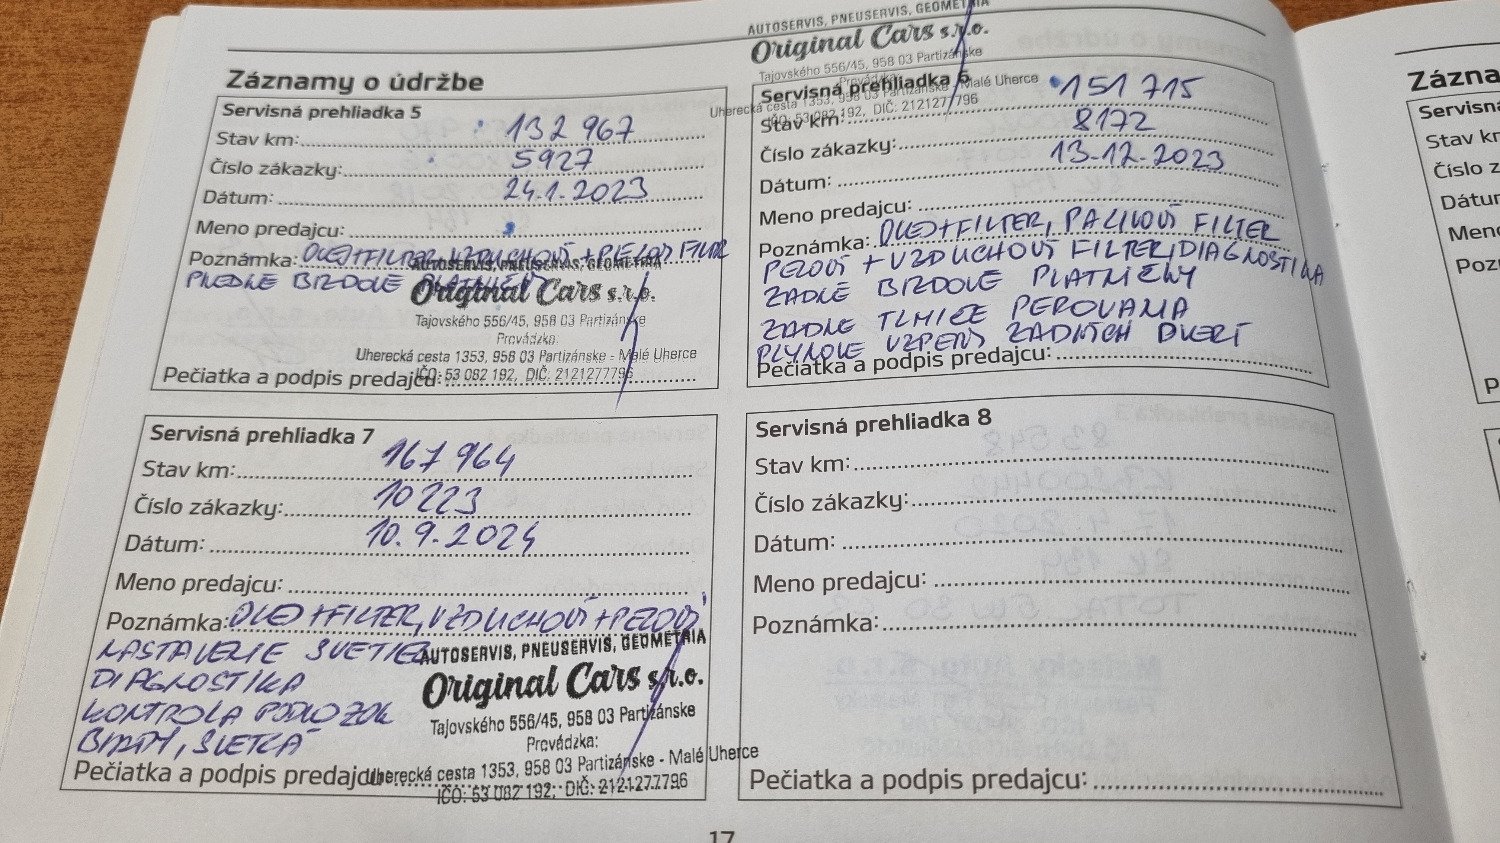 Záznamy o údržbe
Servisná prehliadka 5
Stav km: 132 967
Číslo zákazky: 5927
Dátum: 24.1.2023
Meno predajcu:
Poznámka: OLEJ+FILTER, VZDUCHOVÝ + PEĽOVÝ FILTER
PREDNE BRZDOVE PLATNIČKY
AUTOSERVIS, PNEUSERVIS, GEOMETRIA
Original Cars s.r.o.
Tajovského 556/45, 958 03 Partizánske
Prevádzka:
Uherecká cesta 1353, 958 03 Partizánske - Malé Uherce
IČO: 53 082 192, DIČ: 2121277796
Pečiatka a podpis predajcu:
AUTOSERVIS, PNEUSERVIS, GEOMETRIA
Original Cars s.r.o.
Tajovského 556/45, 958 03 Partizánske
Prevádzka:
Uherecká cesta 1353, 958 03 Partizánske - Malé Uherce
IČO: 53 082 192, DIČ: 2121277796
Servisná prehliadka 6
Stav km: 151 715
Číslo zákazky: 8172
Dátum: 13.12.2023
Meno predajcu:
Poznámka: OLEJ+FILTER, PALIVOVÝ FILTER
PEĽOVÝ + VZDUCHOVÝ FILTER, DIAGNOSTIKA
ZADNÉ BRZDOVE PLATNIČKY
ZADNE TLMIČE PEROVANIA
PLYNOVE VZPERY ZADNÝCH DVERÍ
Pečiatka a podpis predajcu:
Servisná prehliadka 7
Stav km: 167 964
Číslo zákazky: 10223
Dátum: 10.9.2024
Meno predajcu:
Poznámka: OLEJ+FILTER, VZDUCHOVÝ+PEĽOVÝ
NASTAVENIE SVETIEL
DIAGNOSTIKA
KONTROLA PODVOZOK
BRZDY, SVETLÁ
AUTOSERVIS, PNEUSERVIS, GEOMETRIA
Original Cars s.r.o.
Tajovského 556/45, 958 03 Partizánske
Prevádzka:
Uherecká cesta 1353, 958 03 Partizánske - Malé Uherce
IČO: 53 082 192, DIČ: 2121277796
Pečiatka a podpis predajcu:
Servisná prehliadka 8
Stav km:
Číslo zákazky:
Dátum:
Meno predajcu:
Poznámka:
Pečiatka a podpis predajcu:
17